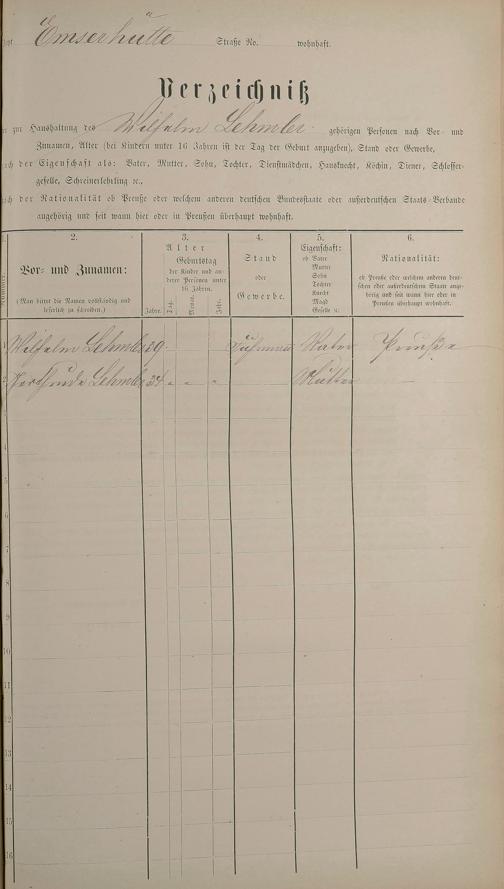 Emserhütte Straße No. wohnhaft.
Verzeichniß
zur Haushaltung des Wilhelm Lehmler gehörigen Personen nach Vor- und
Zunamen, Alter (bei Kindern unter 16 Jahren ist der Tag der Geburt anzugeben), Stand oder Gewerbe,
der Eigenschaft als: Vater, Mutter, Sohn, Tochter, Dienstmädchen, Hausknecht, Köchin, Diener, Schlosser-
geselle, Schreinerlehrling ꝛc.,
der Nationalität ob Preuße oder welchem anderen deutschen Bundesstaate oder außerdeutschen Staats-Verbande
angehörig und seit wann hier oder in Preußen überhaupt wohnhaft.
2. 3. 4. 5. 6.
Vor- und Zunamen:
(Man bittet die Namen vollständig und
leserlich zu schreiben.)
Alter
Geburtstag
der Kinder und an-
derer Personen unter
16 Jahren.
Jahre. Tag. Monat. Jahr.
Stand
oder
Gewerbe.
Eigenschaft:
ob Vater
Mutter
Sohn
Tochter
Knecht
Magd
Geselle ꝛc.
Nationalität:
ob Preuße oder welchem anderen deut-
schen oder außerdeutschen Staat ange-
hörig und seit wann hier oder in
Preußen überhaupt wohnhaft.
1 Wilhelm Lehmler 29 Vater Preuße
2 Lehmler 34 - - - Mutter -
4
5
6
7
8
9
10
11
12
13
14
15
16